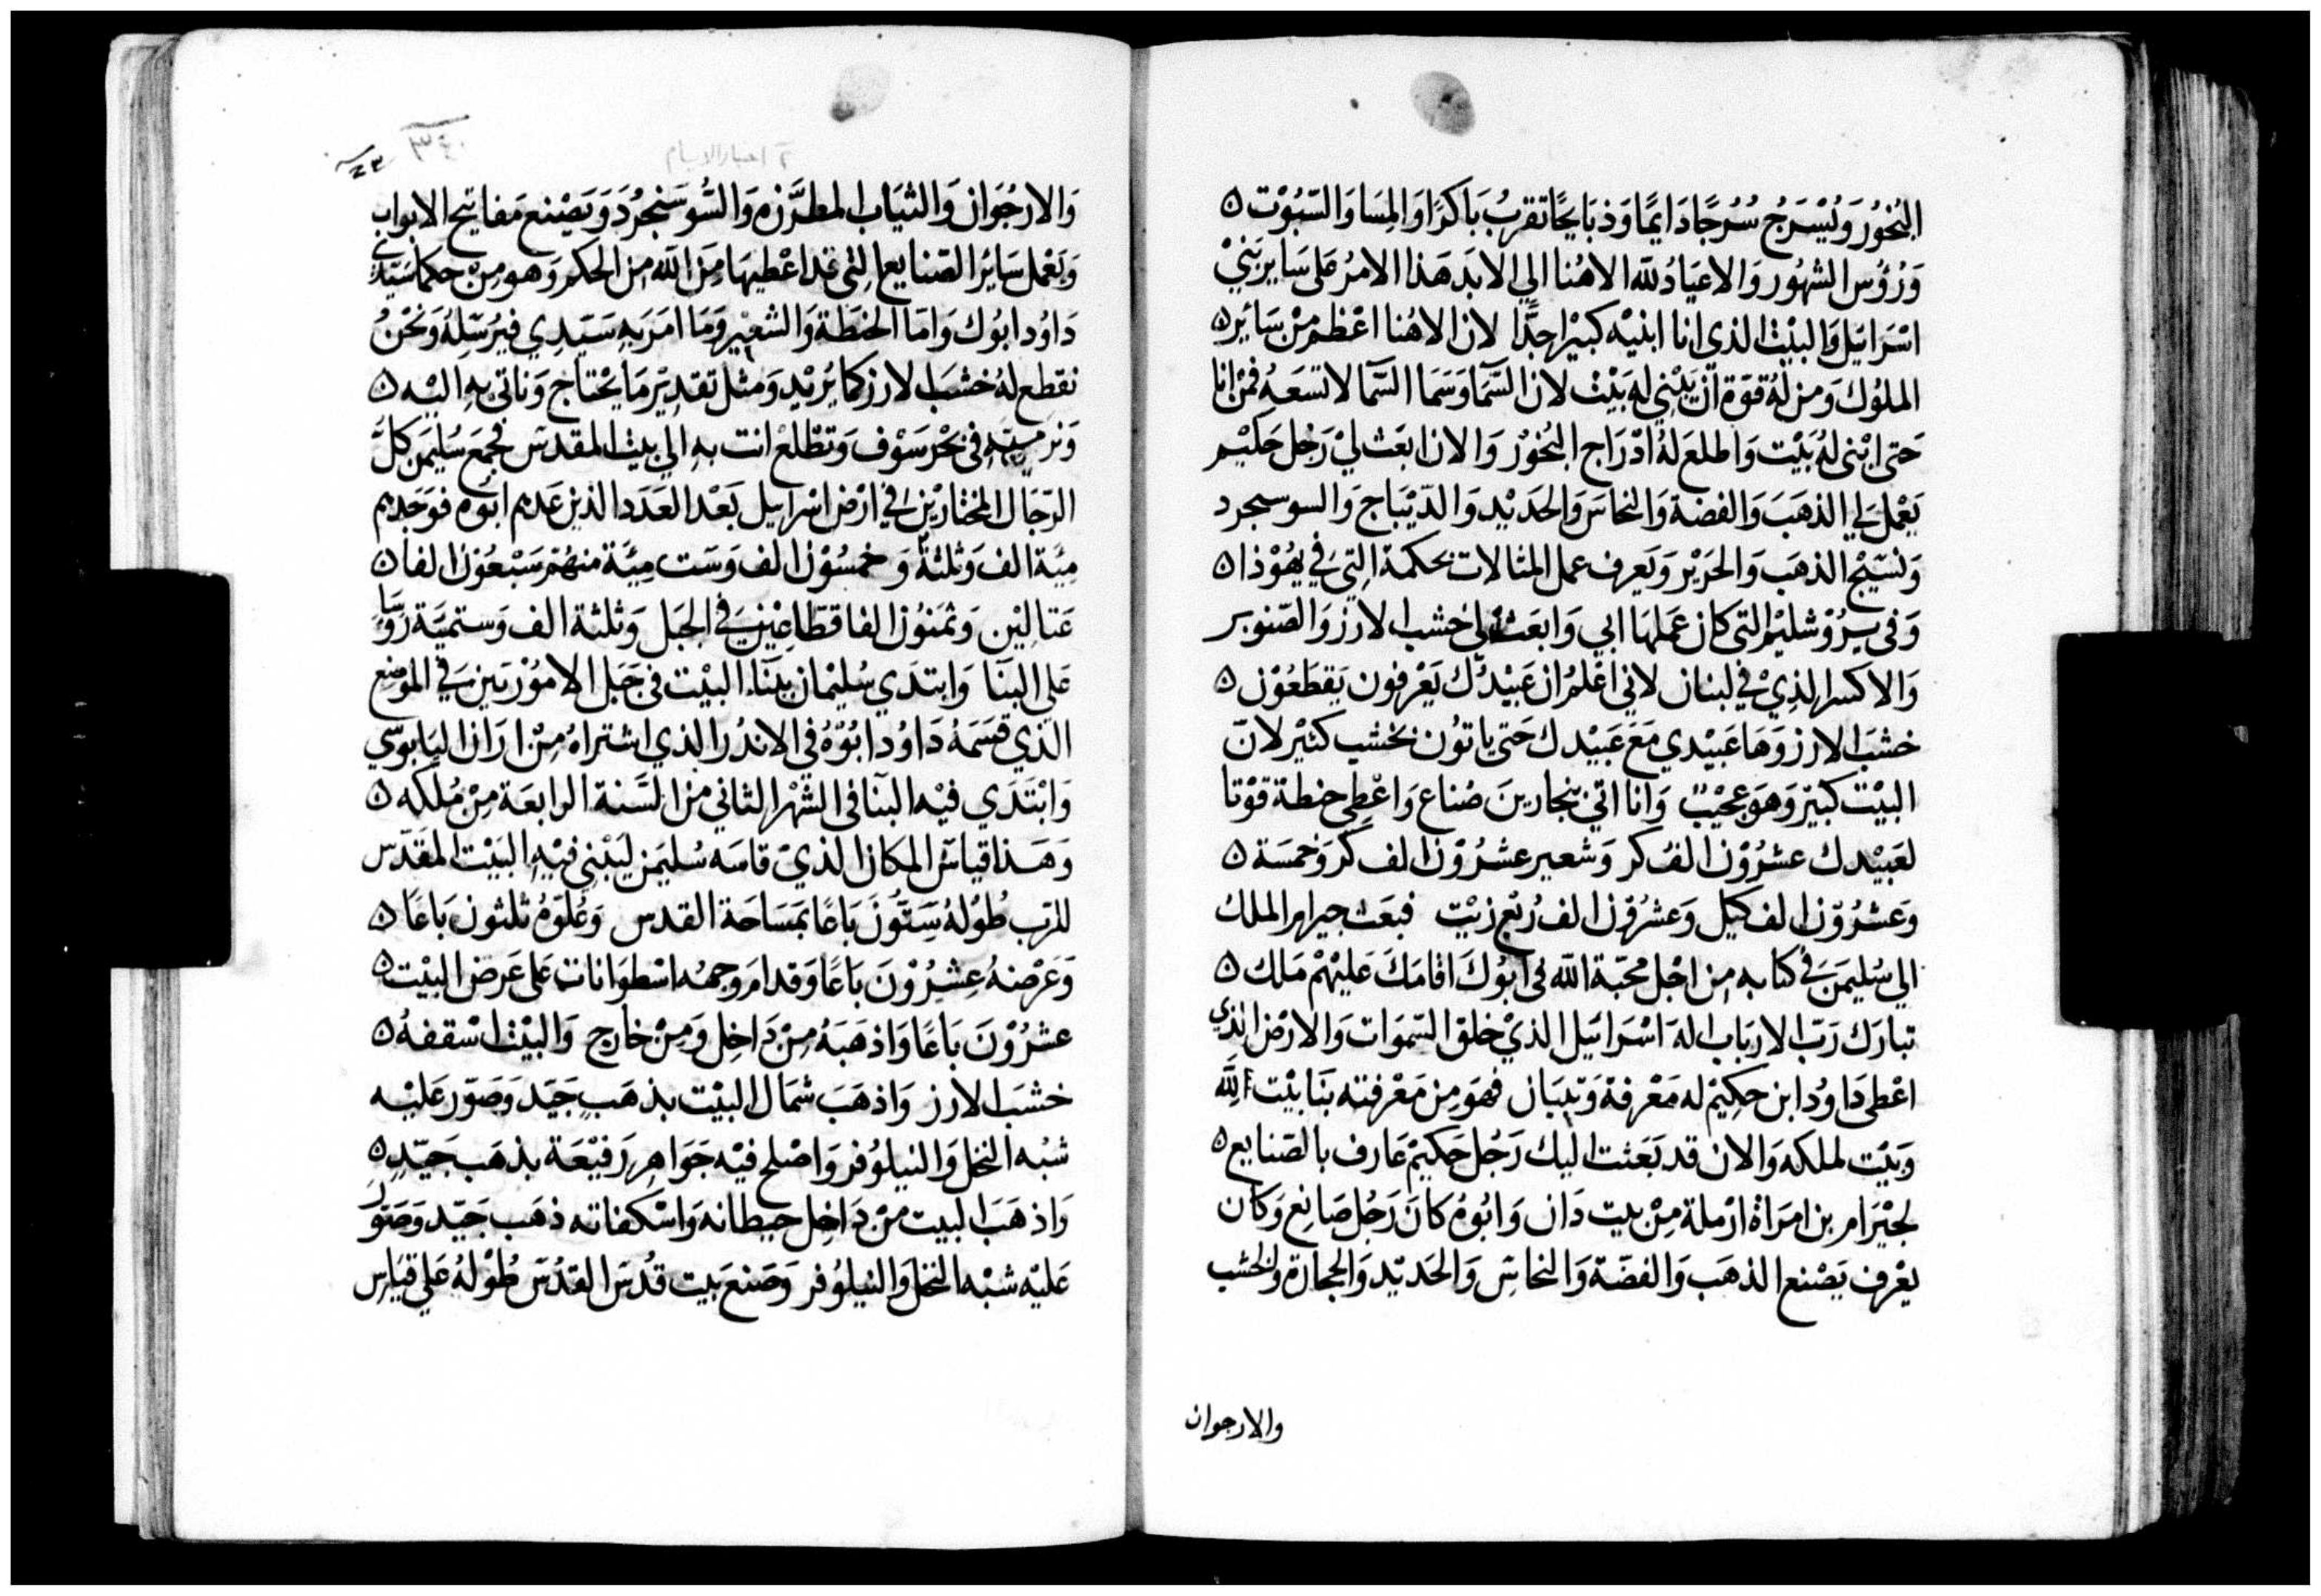 البُخوُر وَيُسْرَجُ سُرُجًا دَايمًا وَذبَايحًا تقربُ بَاكرًا وَالمِسَا وَالسّبُوْت ٥
وَرُؤُس الشهُور وَالاعيَادُ للّه الاهُنا الي الابَد هَذا الامرُ عَلى سَاير بَنيْ
اسْرَاييل وَالبيْت الذي انا ابنيْه كبيْر اجدًّا لان الاهُنا اعْظم مِنْ سَائير ٥
الملوُك وَمن لهُ قوّة انّ يَبْني له بَيْت لان السّمآ وَسَمَا السّمآ لا تسعَهُ فمنْ انا
حَتى ابْني لهُ بَيْت وَاطلع لهُ ادْرَاج البُخوْر وَالان ابعَث ليْ رَجُل حَكيْم
يَعْمل لي الذهَبَ وَالفضة وَالنحاسَ وَالحَديْد وَالدّيْبَاج وَالسوسجرد
وَنسّيْج الذهَبَ وَالحَرْير وَيَعرف عمل المثالات بحكمة التي في يهُوْذا ٥
وَفي يرُوْشليْم التي كان عَملهَا ابي وَابعَث لي خشب الارز وَالصّنوبر
وَالاكسر الذِيْ في لبنان لاني اعْلمُ ان عَبيْدُك يَعْرفون يَقطَعُوْن ٥
خشبَ الارز وَهَا عَبيْدي مَعَ عَبيْدك حَتى ياتُون بخشب كثيْر لانّ
البيْت كبيْر وَهوَ عجيْبٌ وَانا اتي بنجارينَ صُناع وَاعْطي حنطة قوْتا
لعَبيْدك عشرُوْن الفُ كر وَشعير عشرُوْن الف كر وَخمسَة ٥
وعَشرُوْن الف كيْل وَعشرُوْن الف رُبْع زيْت فبعَث حيرام الملك
الي سُليمَنَ في كتابه من اجْل محبّة الله لي ابُوك اقامَكَ عَليْهمْ مَلك ٥
تبارَك رَبّ الارَباب اله اسْرَاييل الذيْ خلق السّموَات وَالارْض الذي
اعْطى دَاوُد ابن حكِيْم له مَعْرفة وَتبيَان فهوَ مِن مَعْرفته بنَا بيْت للّه
وَبيْت لملكه وَالان قد بَعَثت اليْك رَجُل حَكيمْ عَارف بالصّنايع ٥
لحيْرَام بن امرَاة ارْملة مِنْ بيت دَان وَابُوهُ كانَ رَجُل صَانِع وَكَان
يعْرف يَصْنع الذهَب وَالفضّة وَالنحاسَ وَالحَديْد وَالحجارَة وَالخشب
والارجوان
٢ اخبار الايام
٣٤٠
وَالارْجُوَان وَالثيَاب المطرَّزه وَالسُّوسَنجرُدَ وَيَصْنع مَفاتيح الابواب
وَيَعْمل سَائرُ الصّنايع التي قد اعْطيهَا مِنَ الله مِن الحكم وَهو مِنْ حكما سَيّدي
دَاوُد ابُوك وَامَا الحنطَة وَالشعيْر وَمَا امَرَ بهِ سَيّدي فيرُسّلهُ وَنحْنُ
نقطع لهُ خشبَ الارز كما يُريْد وَمثل تقدير مَا يَحْتاج وَناتى به اليْه ٥
وَنرميّه في بحْر سَوْف وَتطْلعْ انت به الي بيْت المقدسَ فجمَع سُليمَن كلَّ
الرّجَال المختارْين في ارْض اسْرَاييل بَعْد العَدَد الذين عَدهم ابُوه فوَجَدهم
ميَّة الف وَثلثة وَ خمسُوْن الف وَست ميَّة منهُمْ سَبْعُوْن الفا ٥
عَتالِيْن وَثمنوُن الفا قطاعيْن في الجَبل وَثلثة الف وَستميَّة رُوَسَا
عَلى البنَا وَابتدَي سُليْمان بينَآء البيْت في جَبَل الامُوْرَيَين في الموَضع
الذي قسَمَهُ دَاوُد ابُوْهُ في الاندُر الذي اشتراهُ مِنْ ارَان اليَابوسّي
وَابْتَدَي فيْه البنآ في الشهْر الثاني من السَّنة الرابعَة مِنْ مُلكه ٥
وَهَذا قياسَ المكان الذيْ قاسَه سُليمَن ليَبْني فيْهِ البَيْت المقدّس
للرّب طوُلهُ سَتّوُنَ بَاعًا بمَسَاحَة القدس وَعُلوّهُ ثلثون بَاعًا ٥
وَعَرْضهُ عشرُوْنَ بَاعًا وَقدام وَجههُ اسْطوَانات عَلى عَرض البيْت ٥
عشرُوْنَ بَاعًا وَاذهَبَهُ مِنْ دَاخل وَمِنْ خارج وَالبيْت اسْقفهُ ٥
خشبَ الارز وَاذهَبَ شمَال البيْت بذهَب جَيّد وَصَوّر عَليْه
شبْه النخل وَالنيلوُفر وَاصْلح فيْه جَوَاهر رَفيْعَة بذهَب جَيّدٍ ٥
وَاذهَبَ البيت منْ دَاخِل حيطانه وَاسْكفاته ذهَب جَيّد وَصَوّر
عَليْه شبْه النخل وَالنيلوُفر وَصَنعَ بَيت قدُس القدُسَ طوْلهُ عَلي قيَاس